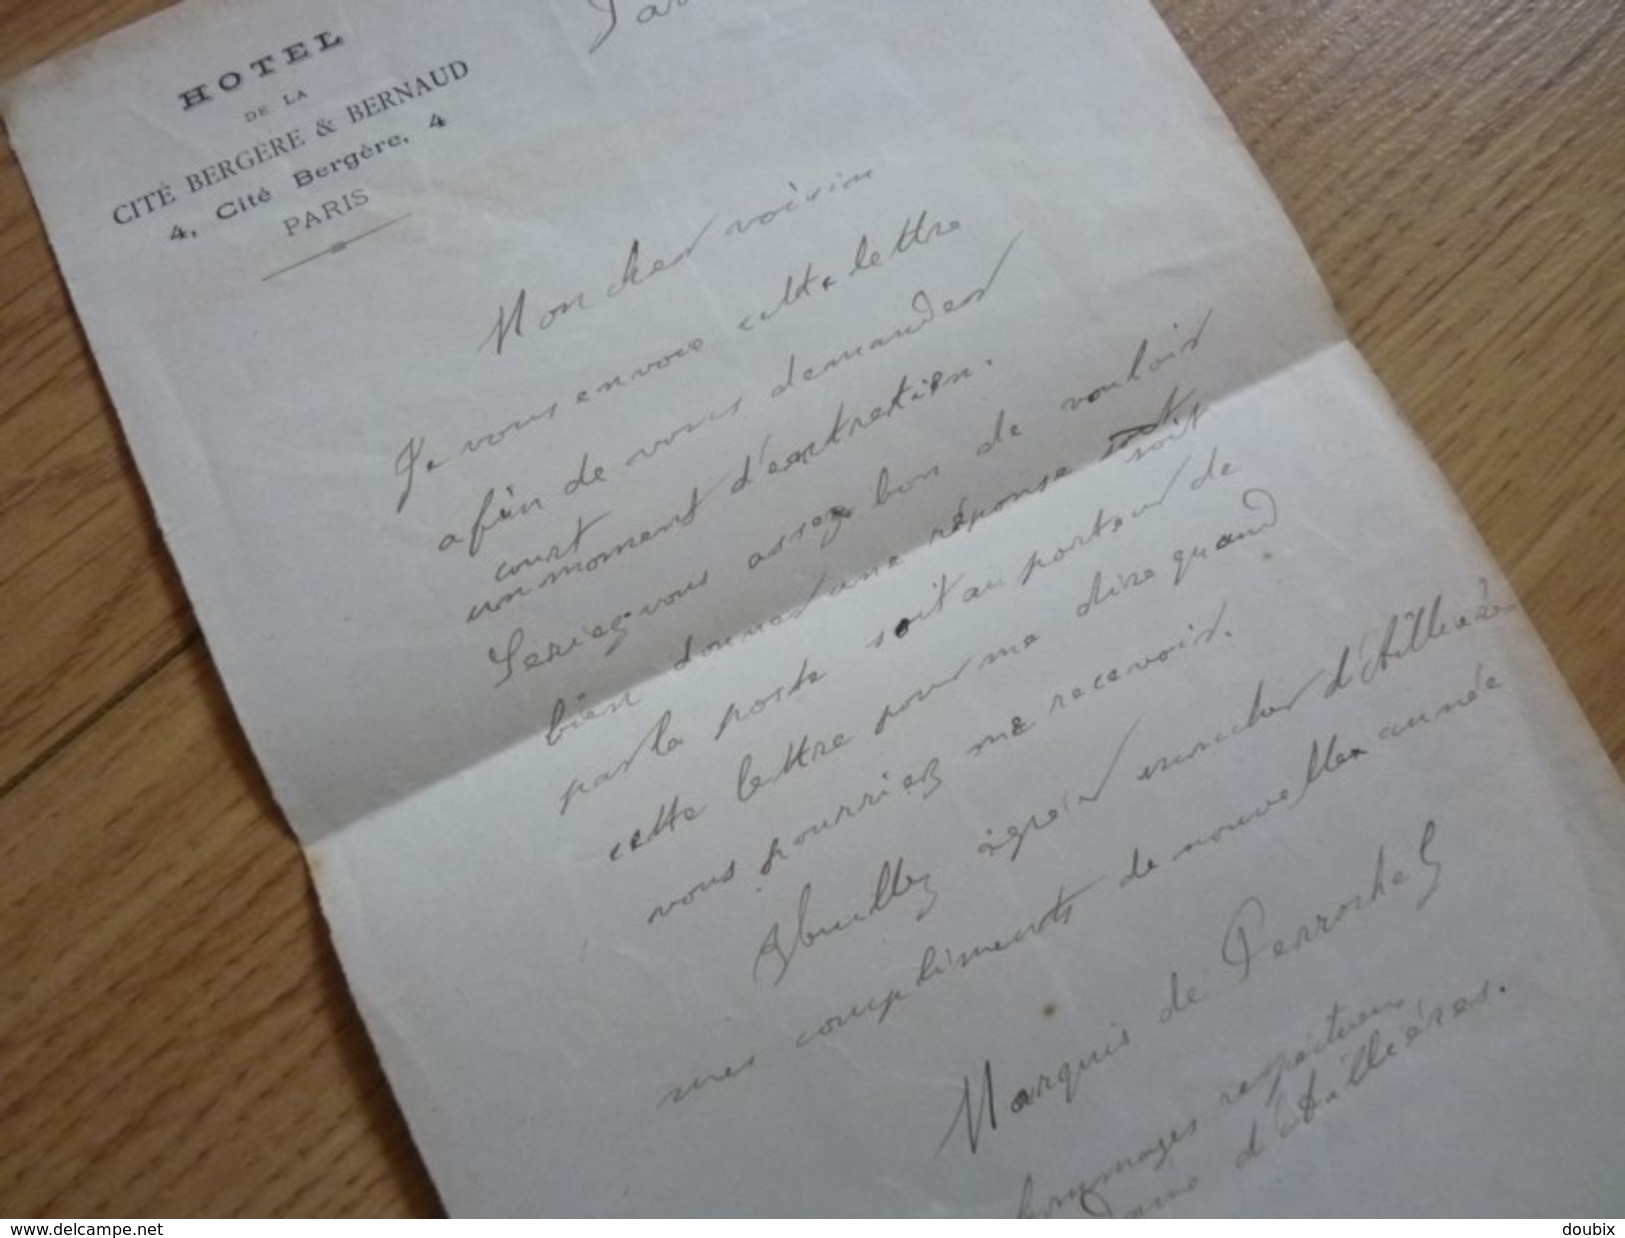 HOTEL
DE LA
CITÉ BERGERE & BERNAUD
4, Cité Bergère, 4
PARIS
Mon cher voisin
Je vous envoie cette lettre
afin de vous demander
court
un moment d'entretien.
Seriez-vous assez bon de vouloir
bien donner une réponse
soit
par la poste soit au porteur de
cette lettre pour me dire quand
vous pourriez me recevoir.
Veuillez agréer mon cher d'Aillières
mes compliments de nouvelle année
Marquis de Perrochel
hommages respectueux
d'Aillières.
www.delcampe.net
doubix